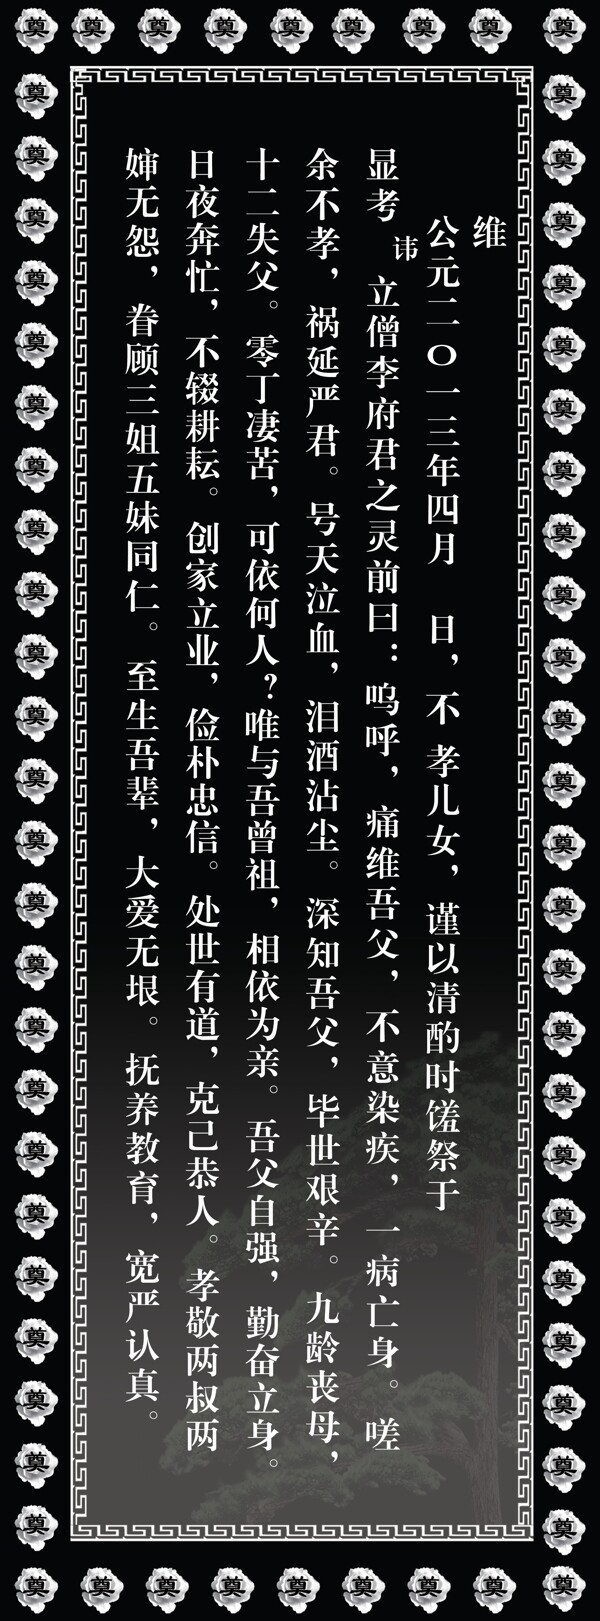 维
公元二〇一三年四月 日，不孝儿女，谨以清酌时馐祭于
显考 讳 立僧李府君之灵前曰：呜呼，痛维吾父，不意染疾，一病亡身。嗟
余不孝，祸延严君。号天泣血，泪洒沾尘。深知吾父，毕世艰辛。九龄丧母，
十二失父。零丁凄苦，可依何人？唯与吾曾祖，相依为亲。吾父自强，勤奋立身。
日夜奔忙，不辍耕耘。创家立业，俭朴忠信。处世有道，克己恭人。孝敬两叔两
婶无怨，眷顾三姐五妹同仁。至生吾辈，大爱无垠。抚养教育，宽严认真。